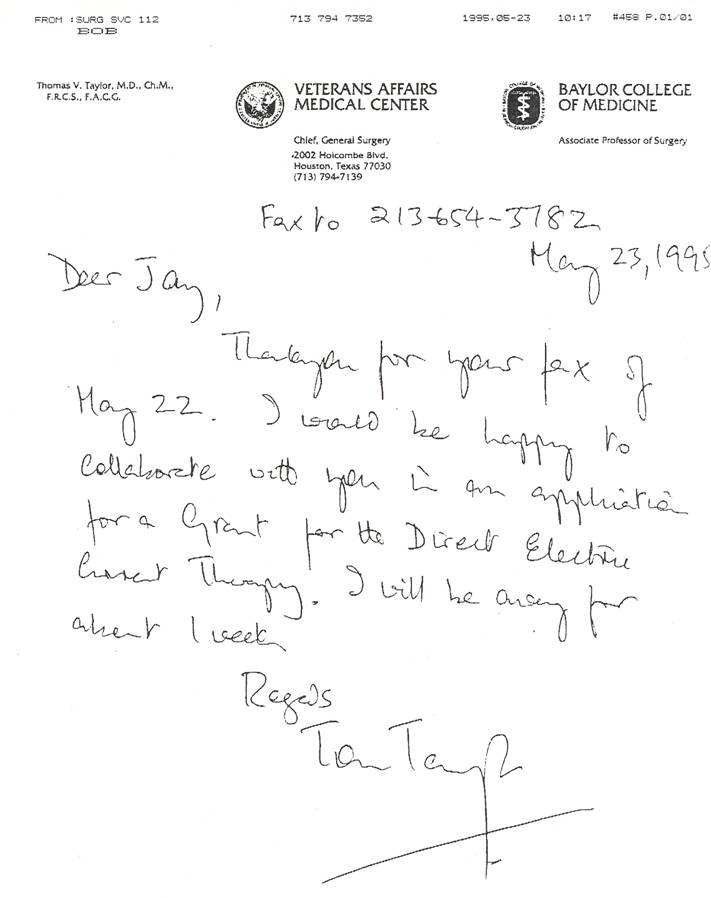 FROM :SURG SVC 112 713 794 7352 1995,05-23 10:17 #458 P.01/01
BOB
Thomas V. Taylor, M.D., Ch.M.,
F.R.C.S., F.A.C.G.
VETERANS AFFAIRS
MEDICAL CENTER
Chief, General Surgery
2002 Holcombe Blvd.
Houston, Texas 77030
(713) 794-7139
BAYLOR COLLEGE
OF MEDICINE
Associate Professor of Surgery
Fax to 213-654-3782
May 23, 1995
Dear Jay,
Thankyou for your fax of
May 22. I would be happy to
Collaborate with you in an application
for a Grant for the Direct Electric
Current Therapy. I will be away for
about 1 week
Regards
Tom Taylor